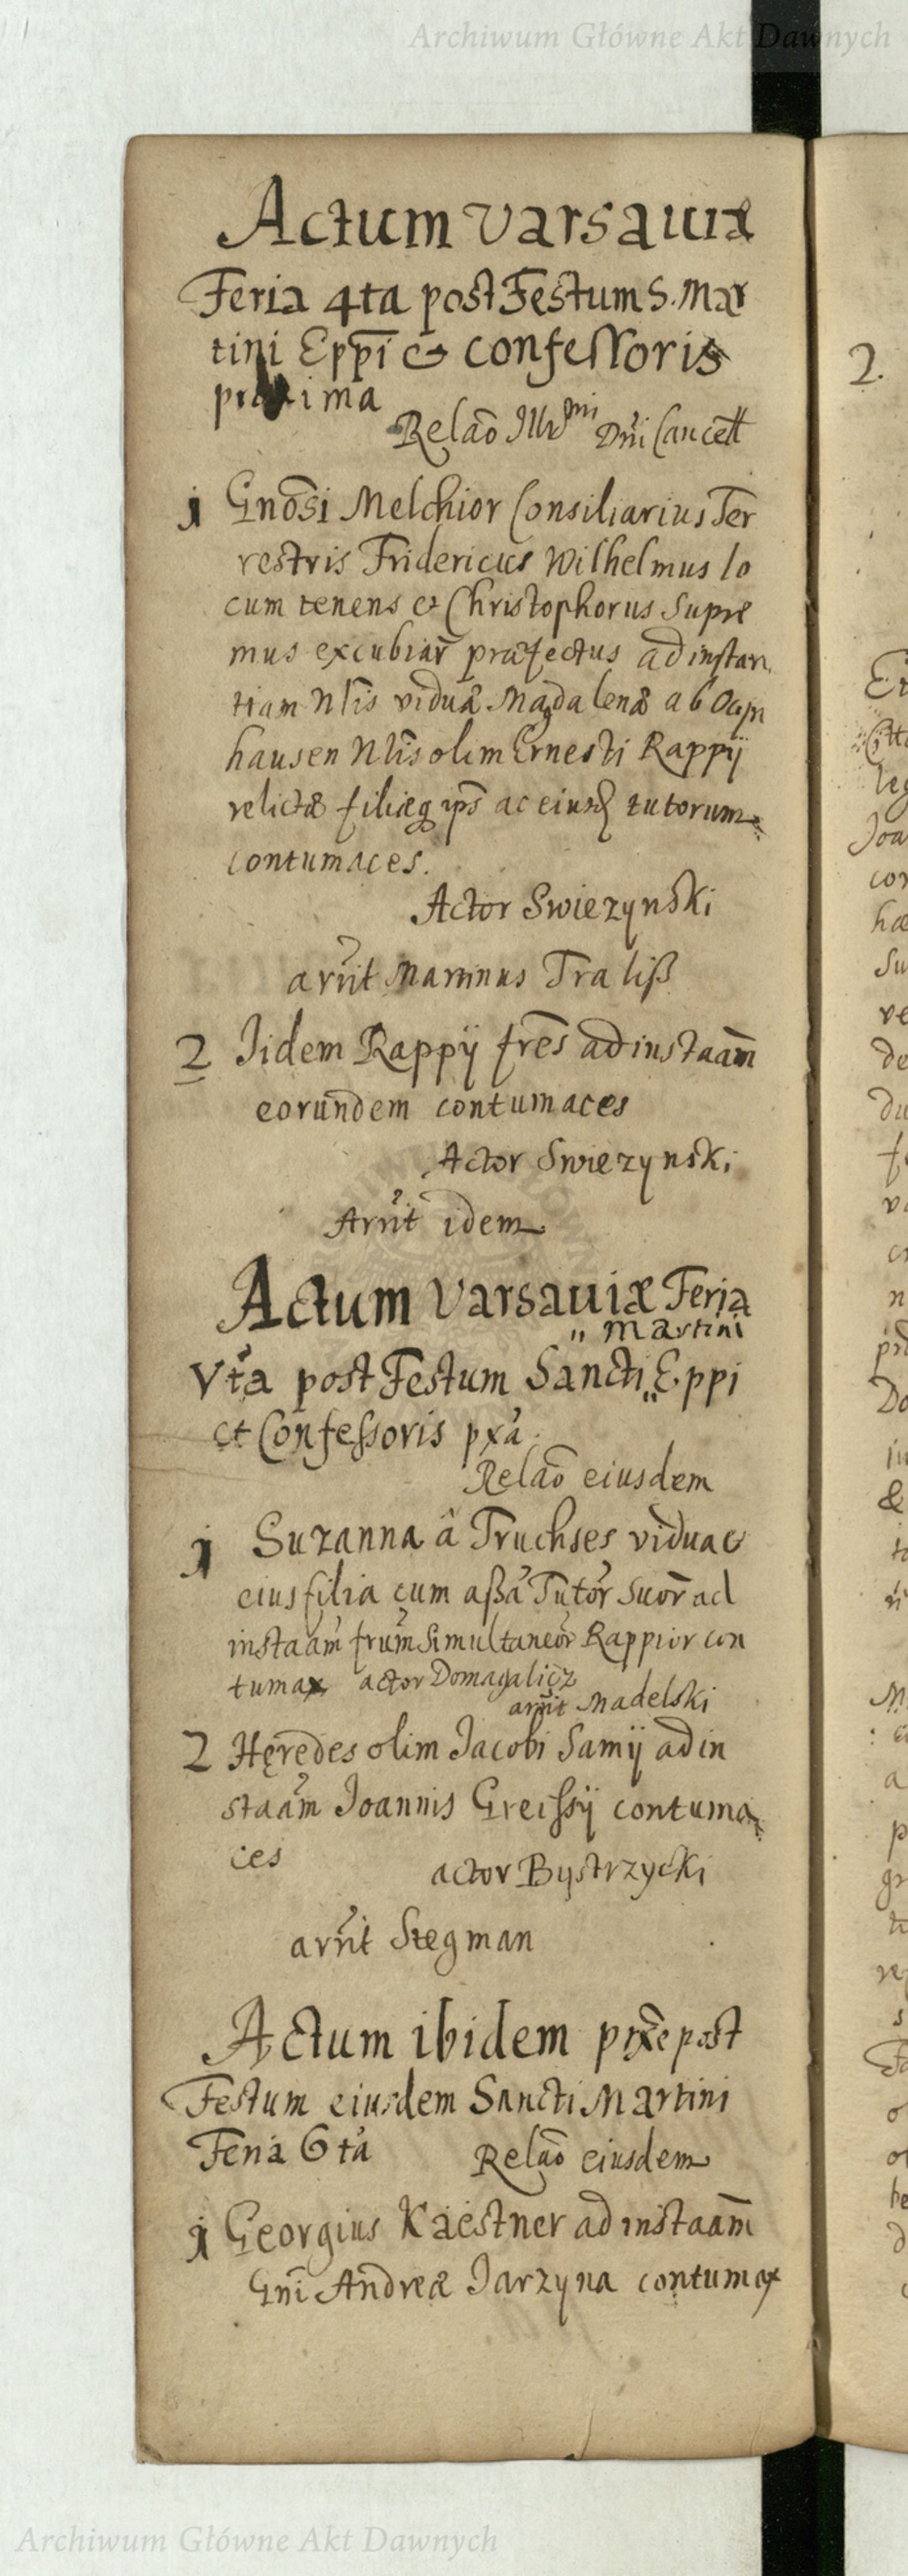 Archiwum Główne Akt Dawnych
Actum Varsauiæ
Feria 4ta post Festum S. Mar
tini Epp̄i & confessoris
proxima
Relaõ Illr̄mi Dn̄i Cancell
1 Gnõsi Melchior Consiliarius Ter
restris Fridericus Wilhelmus lo
cum tenens et Christophorus Supre
mus excubiar̃ præfectus ad instan
tiam Nl̄is viduæ Magdalenæ ab
hausen Nl̄is olim Ernesti Rappÿ
relictæ filiæq ips̄ ac eiusd tutorum
contumaces.
Actor Swiezynski
arūit Martinus Traliß
2 Iidem Rappÿ frēs ad instaam̄
eorundem contumaces
Actor Swiezynski
Arūit idem
Actum Varsauiæ Feria
" Martini
Vta post Festum Sancti " Eppi
et Confessoris pxa.
Relaõ eiusdem
1 Suzanna â Truchses vidua et
eius filia cum aßa Tutor̃ Suor̃ ad
instaam̄ frum̃ simultaneor̃ Rappior con
tumax actor Domagalicz
arūit Madelski
2 Hęredes olim Jacobi Samÿ ad in
staam̄ Joannis Greissÿ contuma
ces
actor Bystrzycki
arūit Stegman
Actum ibidem pxē post
Festum eiusdem Sancti Martini
Feria 6ta Relaõ eiusdem
1 Georgius Kaestner ad instaam̄
Gn̄i Andreæ Jarzyna contumax
2.
Archiwum Główne Akt Dawnych